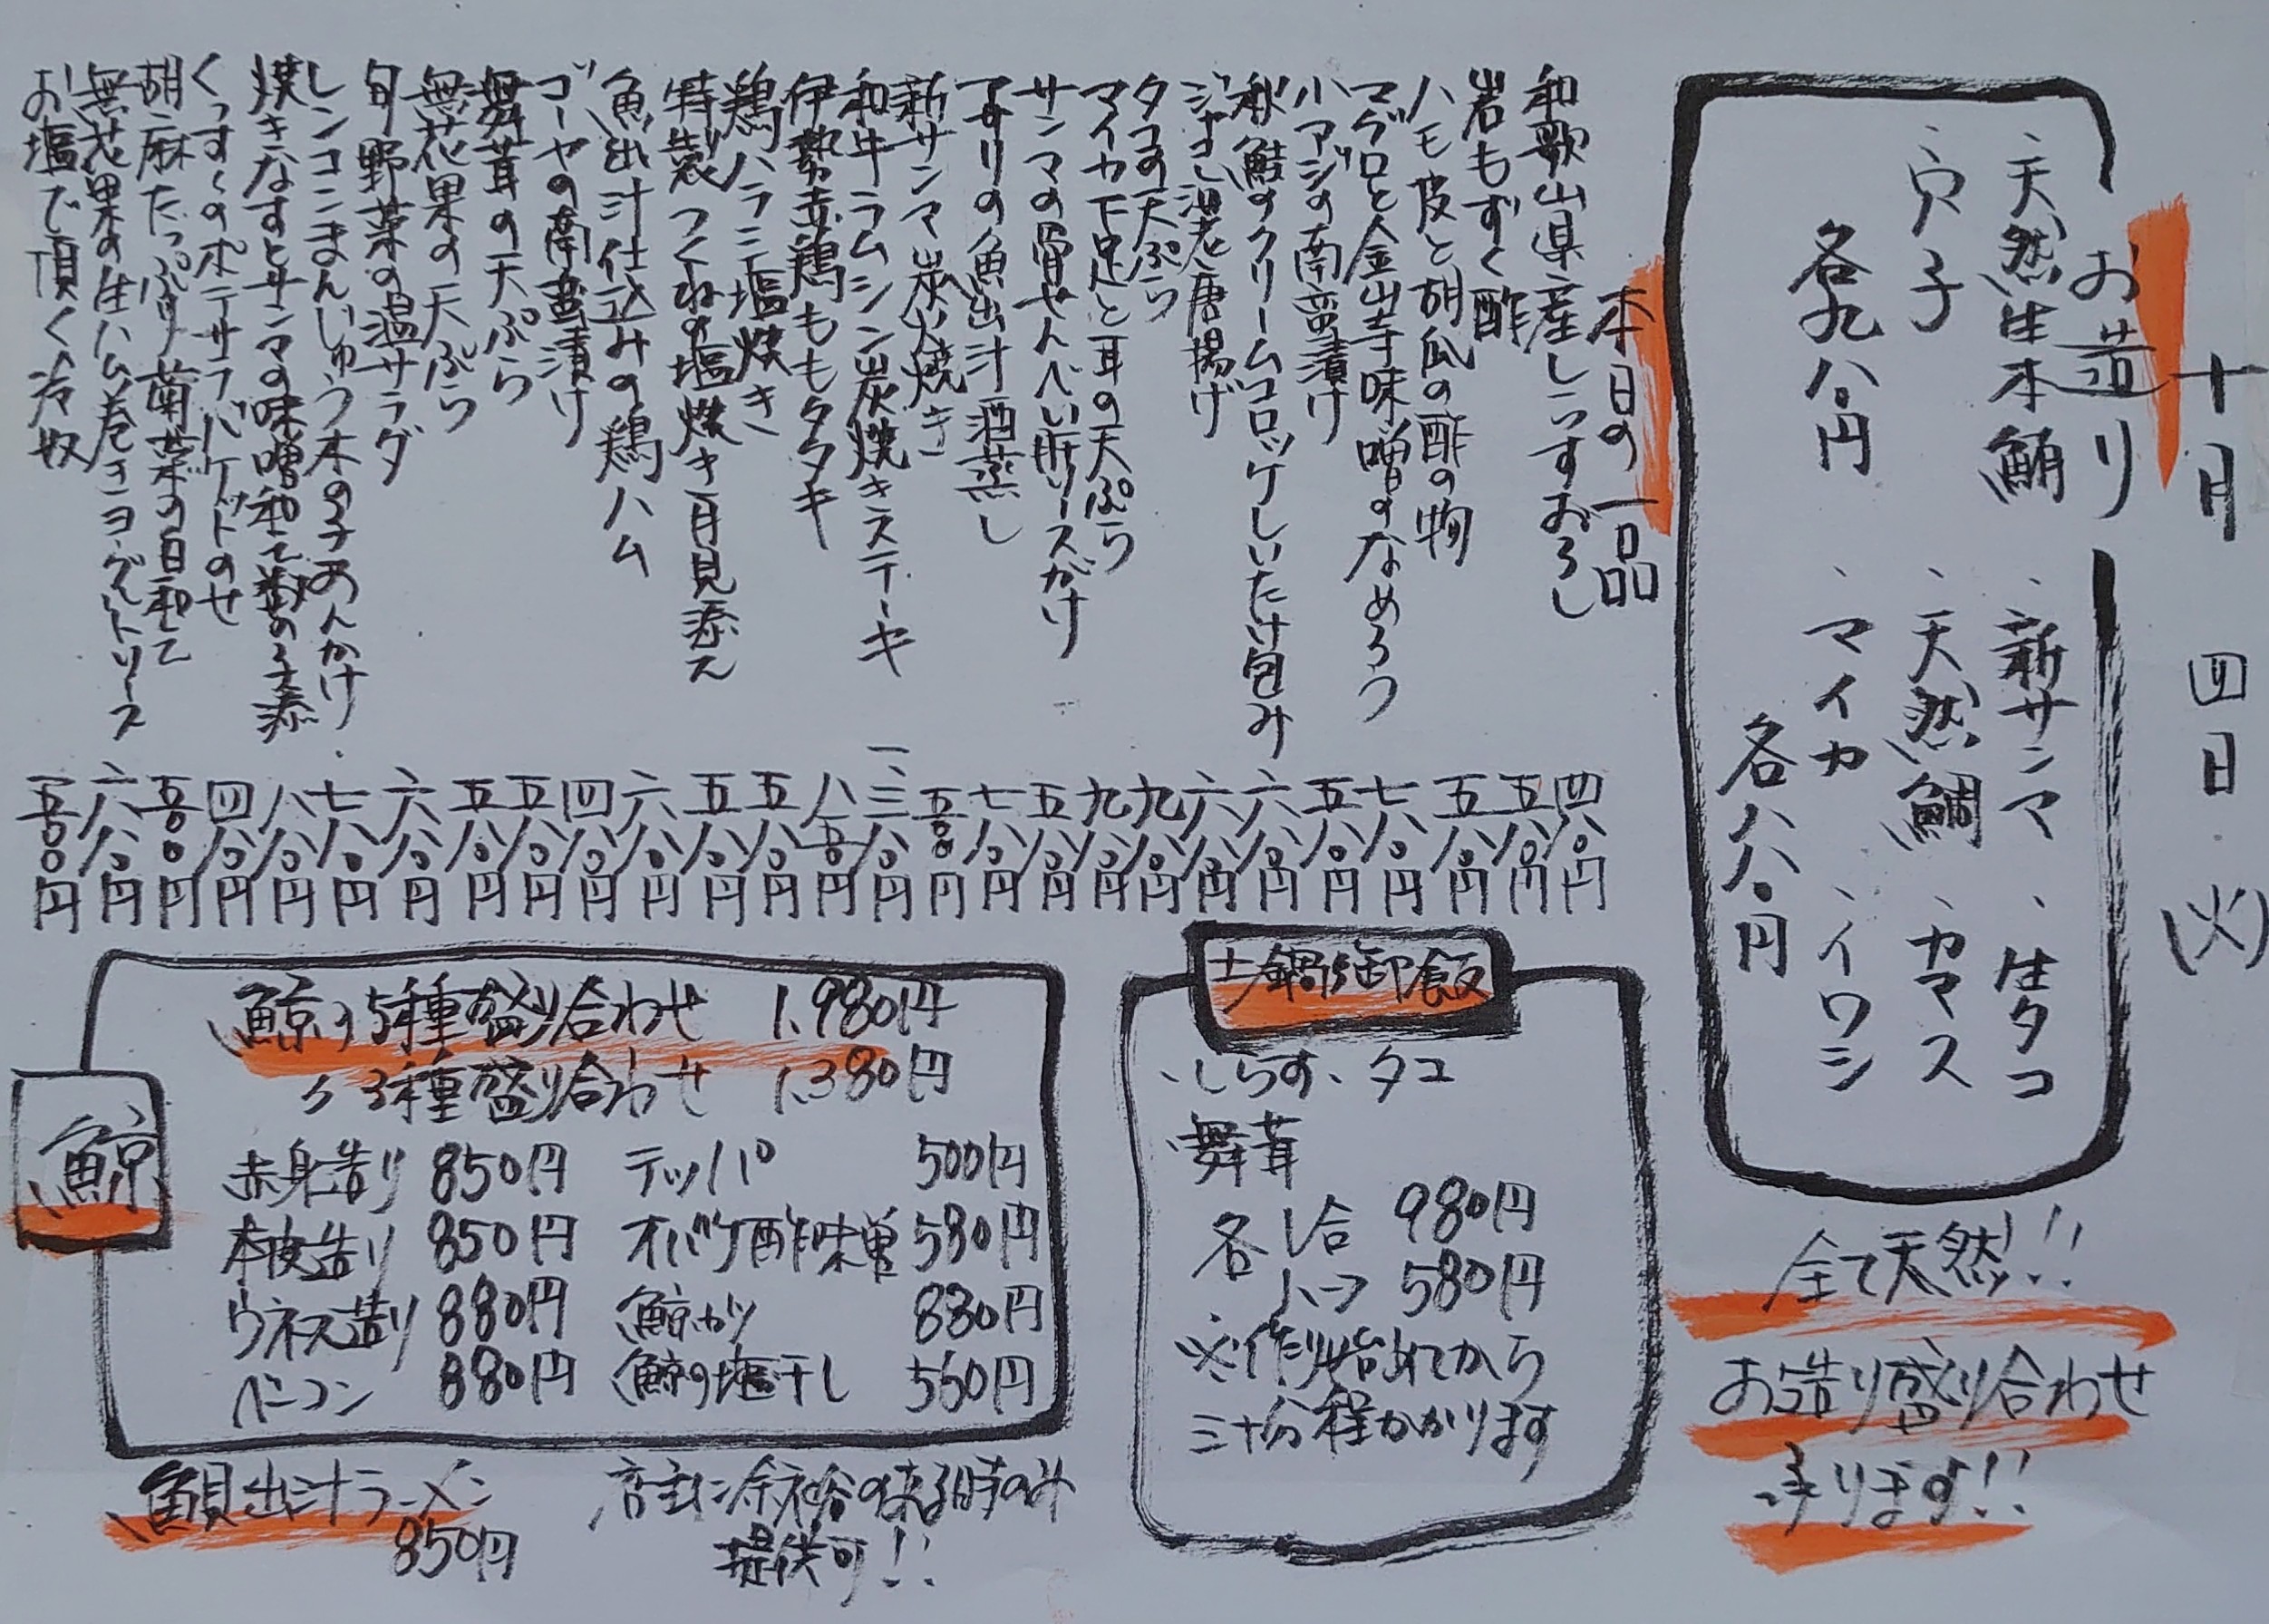 十月 四日 (火)
お造り
、天然生本鮪 、新サンマ 、生タコ
、穴子 、天然鯛 、カマス
各九八〇円 、マイカ 、イワシ
各八八〇円
全て天然!!
お造り盛り合わせ
承ります!!
本日の一品
和歌山県産しらすおろし 四八〇円
岩もずく酢 五八〇円
ハモ皮と胡瓜の酢の物 五八〇円
マグロと金山寺味噌のなめろう 七八〇円
小アジの南蛮漬け 五八〇円
秋鮭のクリームコロッケしいたけ包み 六八〇円
ジャコし海老唐揚げ 六八〇円
タコの天ぷら 九八〇円
マイカ下足と耳の天ぷら 九八〇円
サンマの骨せんべい肝ソースがけ 五八〇円
アサリの魚出汁酒蒸し 七八〇円
新サンマ炭火焼き 五〇〇円
和牛ラムシン炭焼きステーキ 一、三八〇円
伊勢赤鶏ももタタキ 八五〇円
鶏ハラミ塩焼き 五八〇円
特製つくねの塩焼き月見添え 五八〇円
魚出汁仕込みの鶏ハム 六八〇円
ゴーヤの南蛮漬け 四八〇円
舞茸の天ぷら 五八〇円
無花果の天ぷら 五八〇円
旬野菜の温サラダ 六八〇円
レンコンまんじゅう木の子あんかけ 七八〇円
焼きなすとサンマの味噌和て茗の子添 八八〇円
くっすくのポテサラバゲットのせ 四八〇円
胡麻たっぷり菊菜の白和て 五〇〇円
無花果の生ハム巻きヨーグルトソース 六八〇円
お塩で頂く冷奴 五〇〇円
土鍋御飯
、しらす、タコ
、舞茸
各1合 980円
ハーフ 580円
※作り始めてから
三十分程かかります
鯨
、鯨の5種盛り合わせ 1,980円
〃 3種盛り合わせ 1,380円
赤身造り 850円 テッパ 500円
本皮造り 850円 オバケ酢味噌 580円
ウネス造り 880円 鯨カツ 880円
ベーコン 880円 鯨の塩干し 550円
、出汁ラーメン 850円
店主に余裕の来る時のみ
提供可!!